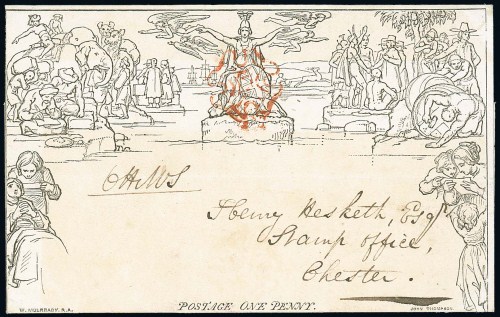 OHMS
Henry Hesketh, Esqr
Stamp Office,
Chester.
W. MULREADY, R.A.
POSTAGE ONE PENNY.
JOHN THOMPSON